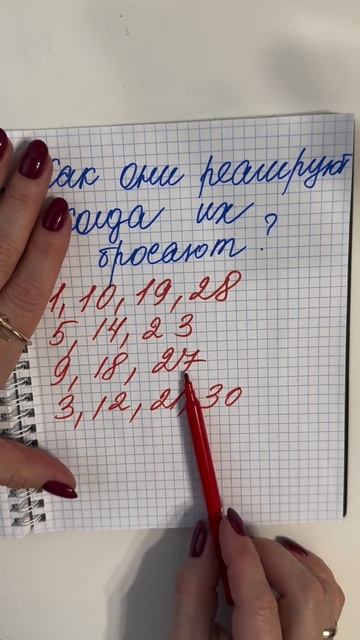 Как они реагируют
когда их
бросают?
1, 10, 19, 28
5, 14, 23
9, 18, 27
3, 12, 21, 30